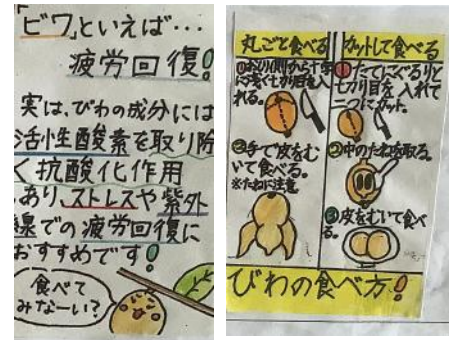 「ビワ」といえば…
疲労回復!
実は、びわの成分には
活性酸素を取り除
く抗酸化作用
あり、ストレスや紫外
線での疲労回復に
おすすめです!
食べて
みなーい?
丸ごと食べる
①おしり側から十字
に浅く切り目を入
れる。
②手で皮をむ
いて食べる。
※たねに注意
カットして食べる
①たてにぐるりと
切り目を入れて
二つにカット。
②中のたねを取る。
③皮をむいて食べ
る。
びわの食べ方!